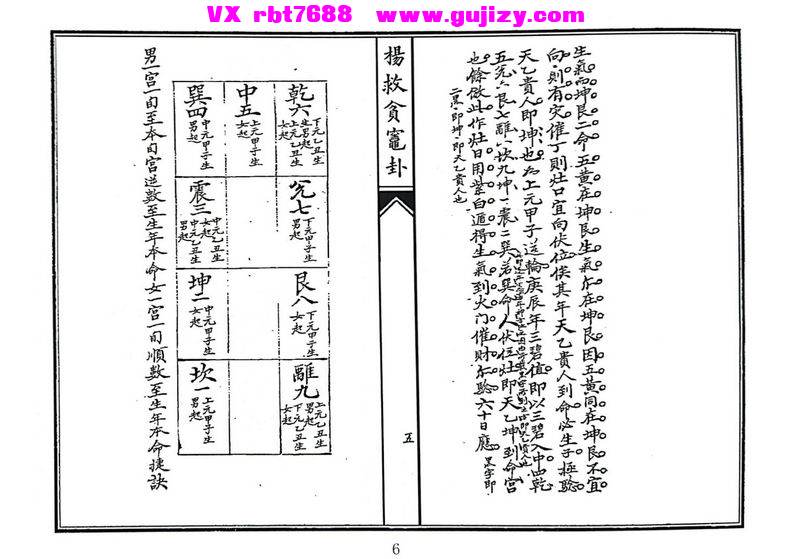 VX rbt7688   www.gujizy.com
生氣而坤艮二命五黃在坤艮生氣亦在坤艮因五黃同在坤艮不宜
向則有灾催丁則灶口宜向伏位俟其年天乙貴人到命必生子極驗
天乙貴人即坤也如上元甲子逆輪庚辰年三碧值即以三碧入中四乾
五兌六艮七離八坎九坤一震二巽若巽命人伏位灶即天乙坤到命宮
也餘倣此作灶日用紫白遁得生氣到火门催財亦驗六十日應
二黑即坤即天乙貴人也
楊救貧竈卦
五
乾六
下元乙丑生男起
上元乙丑生女起
中五
上元甲子生女起
巽四
中元甲子生男起
兌七
下元甲子生男起
震三
中元乙丑生女起
中元乙丑生男起
艮八
下元甲子生女起
坤二
中元甲子生女起
離九
上元乙丑生男起
下元乙丑生女起
坎一
上元甲子生男起
男一宮一旬至本旬宮逆數至生年本命女一宮一旬順數至生年本命捷訣
6